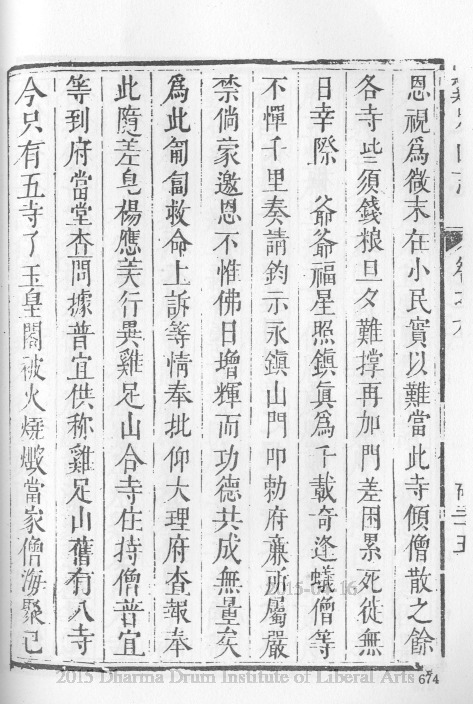 恩視爲微末在小民實以難當此寺傾僧散之餘
各寺些須錢粮旦夕難撐再加門差困累死徙無
日幸際　爺爺福星照鎮眞爲千載奇逢蟻僧等
不憚千里奏請鈞示永鎮山門叩勅府廉所屬嚴
禁倘蒙邀恩不惟佛日增輝而功德共成無量矣
爲此匍匐救命上訴等情奉批仰大理府查報奉
此隨差皂楊應美行異雞足山合寺住持僧普宜
等到府當堂查問據普宜供称雞足山舊有八寺
今只有五寺了玉皇閣被火燒燬當家僧海聚已
2015-06-16
2015 Dharma Drum Institute of Liberal Arts
674